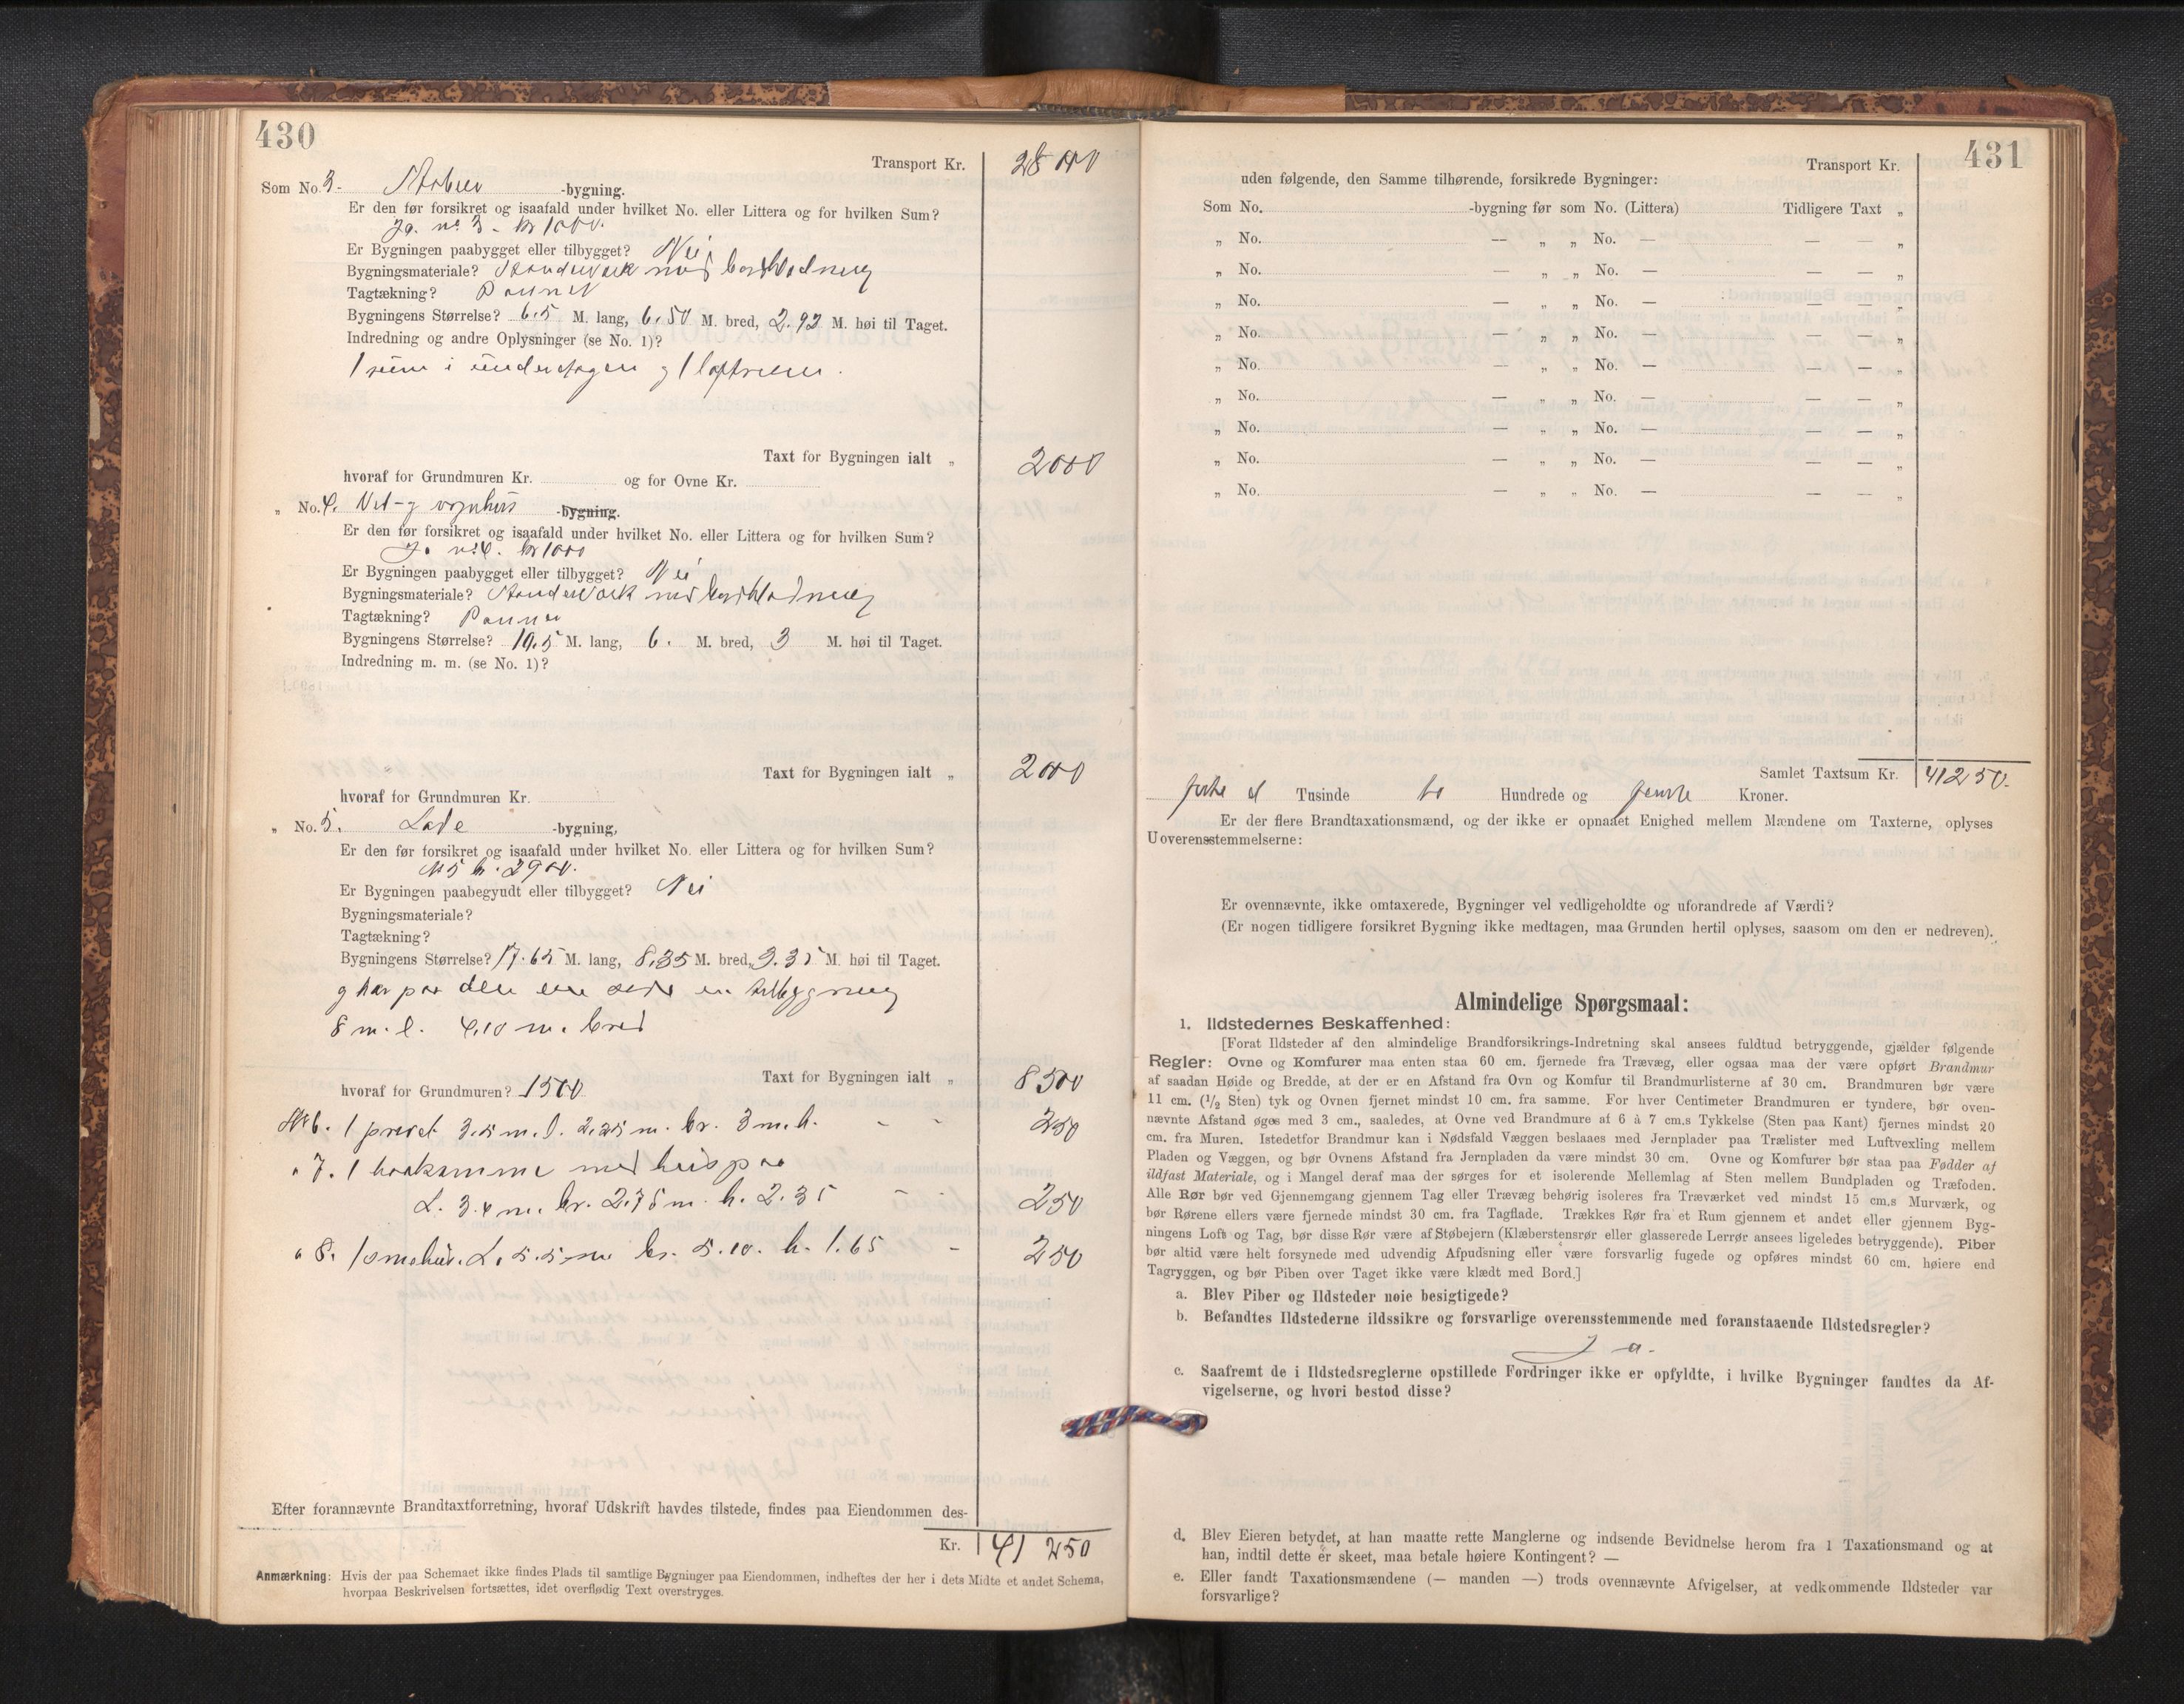 430
Transport Kr. 28000
Som No. 3. Stabur -bygning.
Er den før forsikret og isaafald under hvilket No. eller Littera og for hvilken Sum?
Ja. no. 3 - kr 1000.
Er Bygningen paabygget eller tilbygget? Nei
Bygningsmateriale? Standerværk med bordklædning
Tagtækning? Panner
Bygningens Størrelse? 6.5 M. lang, 6.50 M. bred, 2.92 M. høi til Taget.
Indredning og andre Oplysninger (se No. 1)?
1 rum i underetagen og 1 loftrum.
Taxt for Bygningen ialt „ 2000
hvoraf for Grundmuren Kr. og for Ovne Kr.
„ No. 4. Ved- og vognhus -bygning.
Er den før forsikret og isaafald under hvilket No. eller Littera og for hvilken Sum?
Ja no 4. kr 1000
Er Bygningen paabygget eller tilbygget? Nei
Bygningsmateriale? Standerværk med bordklædning
Tagtækning? Panner
Bygningens Størrelse? 10.5 M. lang, 6. M. bred, 3 M. høi til Taget.
Indredning m. m. (se No. 1)?
Taxt for Bygningen ialt „ 2000
hvoraf for Grundmuren Kr.
„ No. 5. Lade -bygning,
Er den før forsikret og isaafald under hvilket No. eller Littera og for hvilken Sum?
No 5 kr. 2900.
Er Bygningen paabegyndt eller tilbygget? Nei
Bygningsmateriale?
Tagtækning?
Bygningens Størrelse? 17.65 M. lang, 8,35 M. bred, 3.35 M. høi til Taget.
og har paa den ene side en tilbygning
8 m. l. 4.10 m. bred
Taxt for Bygningen ialt „ 8500
hvoraf for Grundmuren? 1500
No 6. 1 privet 3.5 m. l. 2.25 m. br. 3 m. h. - - 250
„ 7. 1 med paa
L. 3.4 m. br. 2.75 m. h. 2.35 - 250
„ 8. 1 L. 5.5 m br. 5.10. h. 1.65 - 250
Efter forannævnte Brandtaxtforretning, hvoraf Udskrift havdes tilstede, findes paa Eiendommen des-
Kr. 41 250
Anmærkning: Hvis der paa Schemaet ikke findes Plads til samtlige Bygninger paa Eiendommen, indheftes der her i dets Midte et andet Schema,
hvorpaa Beskrivelsen fortsættes, idet overflødig Text overstryges.
431
Transport Kr.
uden følgende, den Samme tilhørende, forsikrede Bygninger:
Som No. -bygning før som No. (Littera) Tidligere Taxt „
„ No. — „ „ No. — — — „
„ No. — „ „ No. — — — „
„ No. — „ „ No. — — — „
„ No. — „ „ No. — — — „
„ No. — „ „ No. — — — „
„ No. — „ „ No. — — — „
„ No. — „ „ No. — — — „
„ No. — „ „ No. — — — „
„ No. — „ „ No. — — — „
Samlet Taxtsum Kr. 41250.
førti et Tusinde to Hundrede og femti Kroner.
Er der flere Brandtaxationsmænd, og der ikke er opnaaet Enighed mellem Mændene om Taxterne, oplyses
Uoverensstemmelserne:
Er ovennævnte, ikke omtaxerede, Bygninger vel vedligeholdte og uforandrede af Værdi?
(Er nogen tidligere forsikret Bygning ikke medtagen, maa Grunden hertil oplyses, saasom om den er nedreven).
Almindelige Spørgsmaal:
1. Ildstedernes Beskaffenhed:
[Forat Ildsteder af den almindelige Brandforsikrings-Indretning skal ansees fuldtud betryggende, gjælder følgende
Regler: Ovne og Komfurer maa enten staa 60 cm. fjernede fra Trævæg, eller ogsaa maa der være opført Brandmur
af saadan Høide og Bredde, at der er en Afstand fra Ovn og Komfur til Brandmurlisterne af 30 cm. Brandmuren bør være
11 cm. (1/2 Sten) tyk og Ovnen fjernet mindst 10 cm. fra samme. For hver Centimeter Brandmuren er tyndere, bør oven-
nævnte Afstand øges med 3 cm., saaledes, at Ovne ved Brandmure af 6 à 7 cm.s Tykkelse (Sten paa Kant) fjernes mindst 20
cm. fra Muren. Istedetfor Brandmur kan i Nødsfald Væggen beslaaes med Jernplader paa Trælister med Luftvexling mellem
Pladen og Væggen, og bør Ovnens Afstand fra Jernpladen da være mindst 30 cm. Ovne og Komfurer bør staa paa Fødder af
ildfast Materiale, og i Mangel deraf maa der sørges for et isolerende Mellemlag af Sten mellem Bundpladen og Træfoden.
Alle Rør bør ved Gjennemgang gjennem Tag eller Trævæg behørig isoleres fra Træværket ved mindst 15 cm.s Murværk, og
bør Rørene ellers være fjernede mindst 30 cm. fra Tagflade. Trækkes Rør fra et Rum gjennem et andet eller gjennem Byg-
ningens Loft og Tag, bør disse Rør være af Støbejern (Klæberstensrør eller glasserede Lerrør ansees ligeledes betryggende). Piber
bør altid være helt forsynede med udvendig Afpudsning eller være forsvarlig fugede og opføres mindst 60 cm. høiere end
Tagryggen, og bør Piben over Taget ikke være klædt med Bord.]
a. Blev Piber og Ildsteder nøie besigtigede?
b. Befandtes Ildstederne ildssikre og forsvarlige overensstemmende med foranstaaende Ildstedsregler?
Ja.
c. Saafremt de i Ildstedsreglerne opstillede Fordringer ikke er opfyldte, i hvilke Bygninger fandtes da Af-
vigelserne, og hvori bestod disse?
d. Blev Eieren betydet, at han maatte rette Manglerne og indsende Bevidnelse herom fra 1 Taxationsmand og at
han, indtil dette er skeet, maa betale høiere Kontingent? —
e. Eller fandt Taxationsmændene (— manden —) trods ovennævnte Afvigelser, at vedkommende Ildsteder var
forsvarlige?